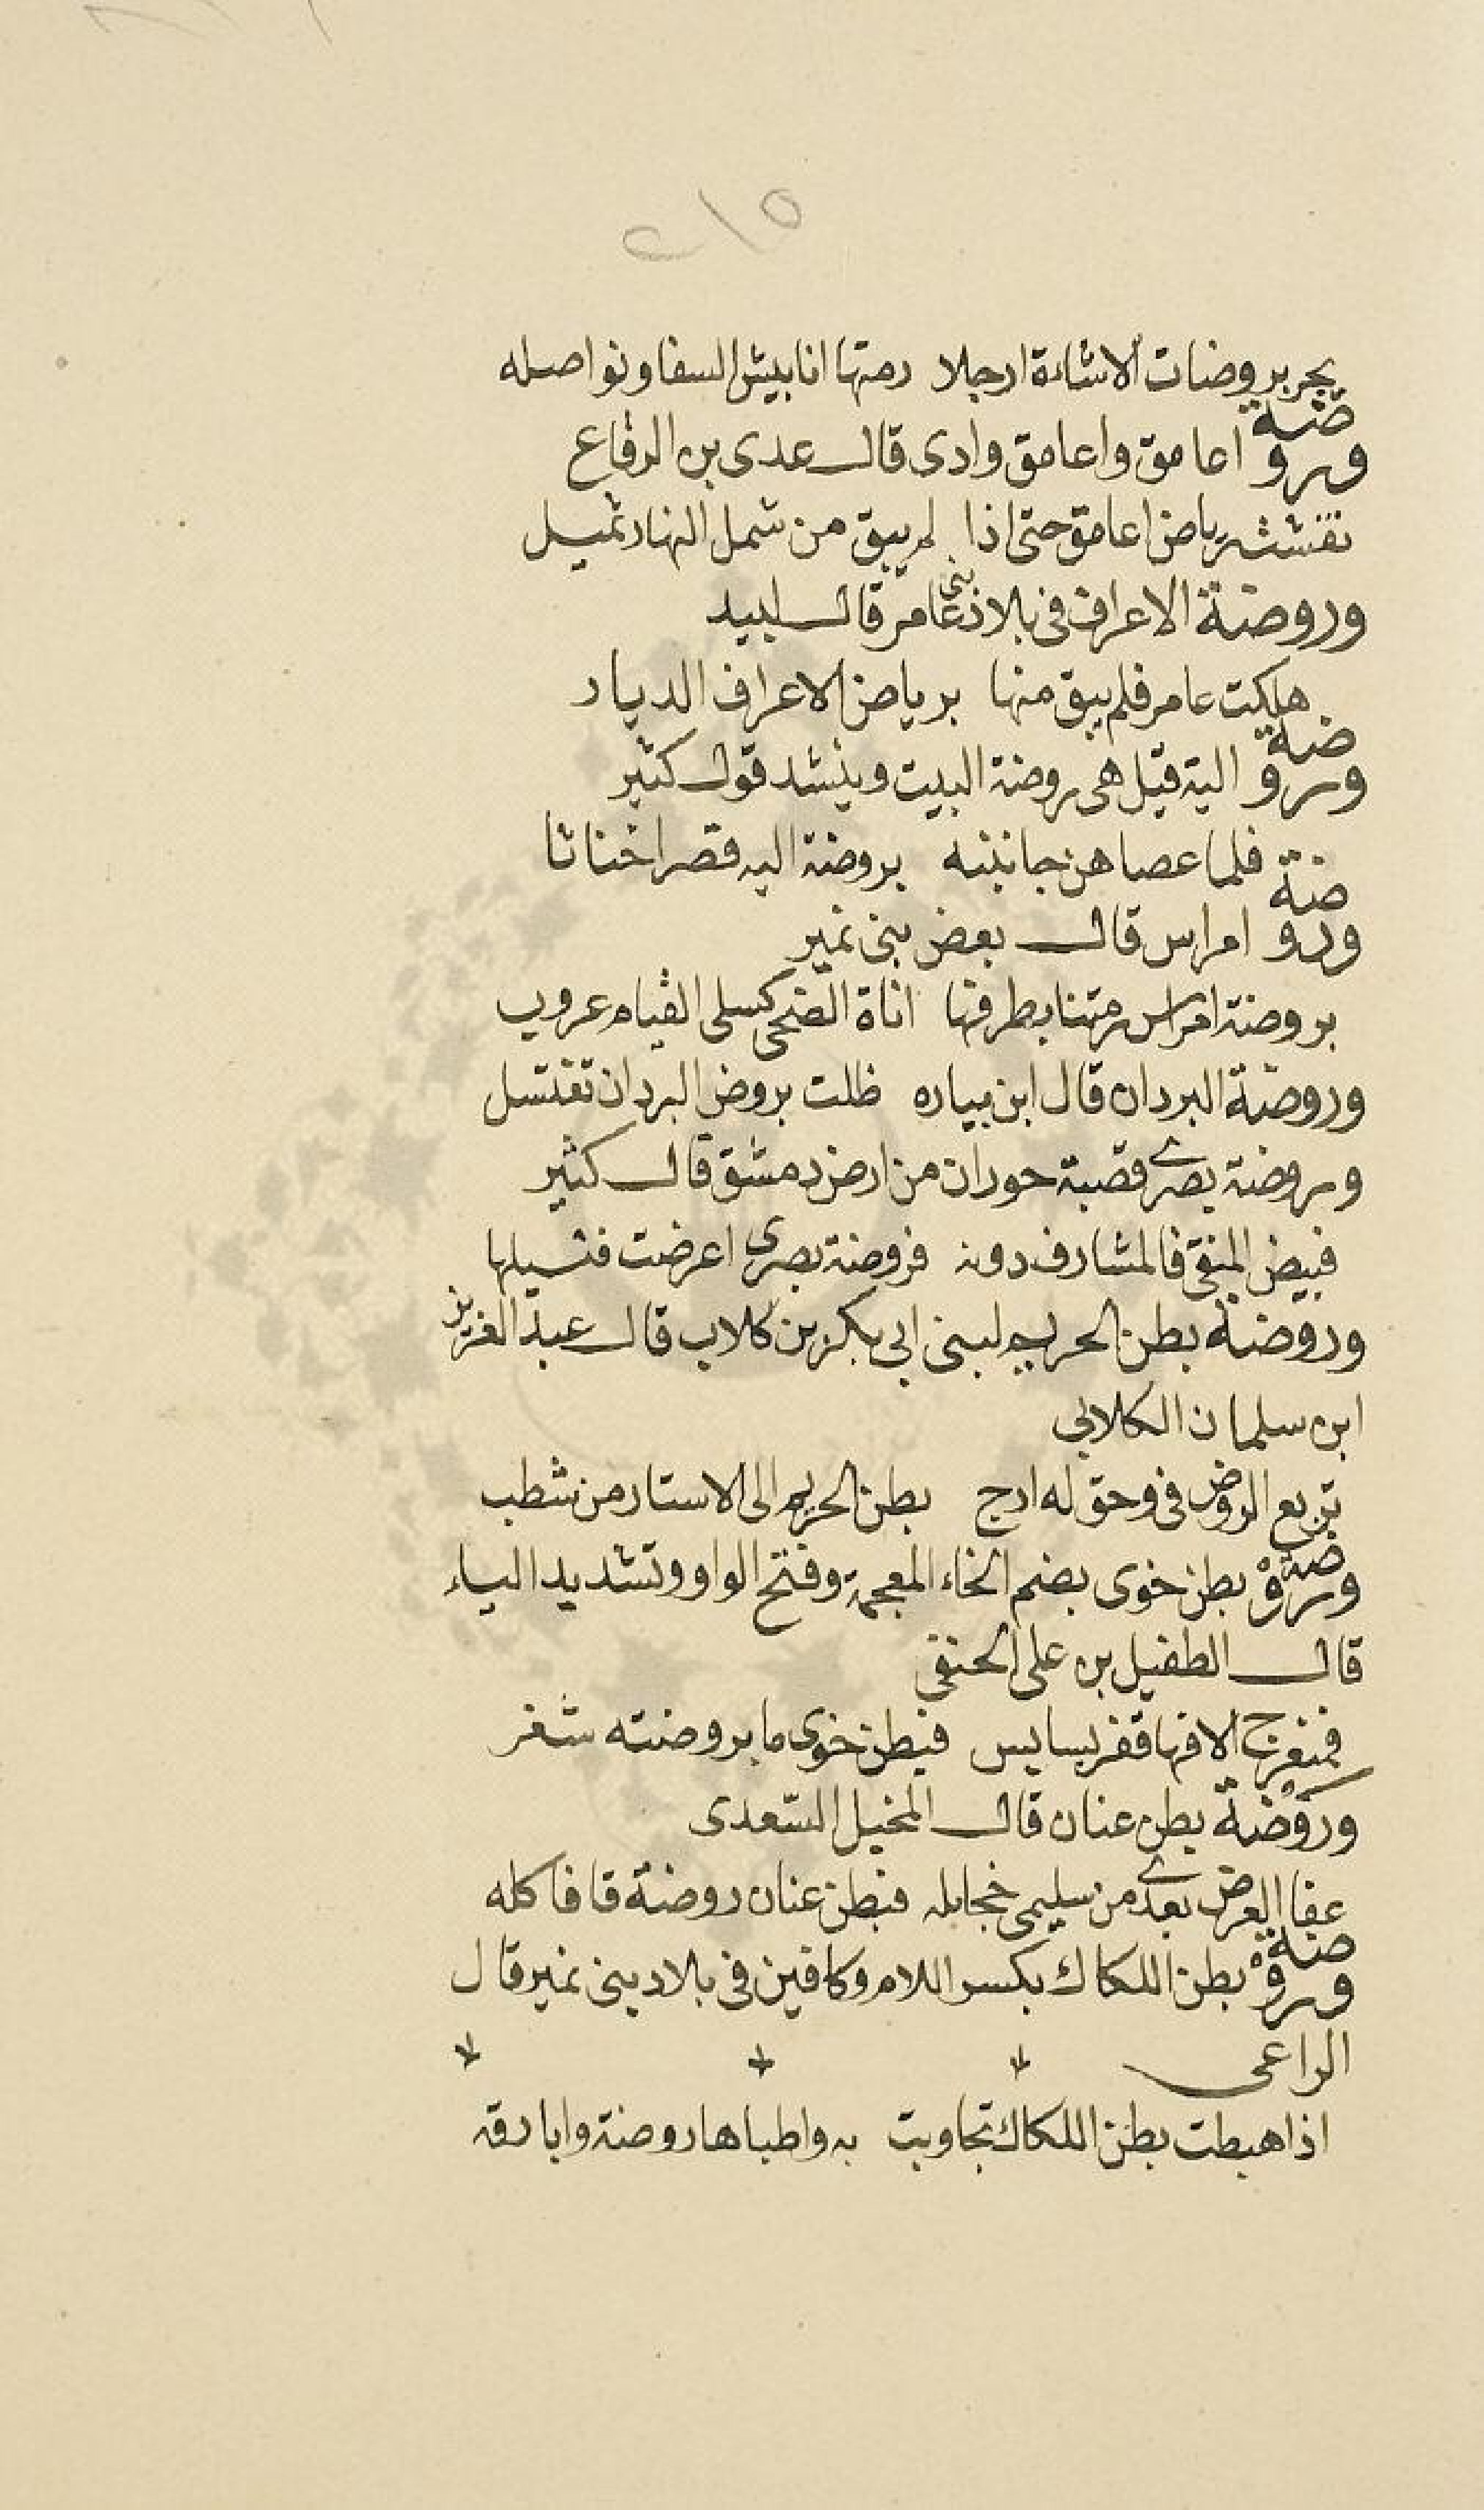 ٢١٥
بجر بروضات الاشاءة ارجلا رمتها انابيش السفا ونواصله
وروضة اعامق واعامق وادى قال عدى بن الرقاع
نفشت رياض اعامق حتى اذا لم يبق من شمل النهار ثميل
وروضة الاعراف فى بلاد بنى عامر قال لبيد
هلكت عامر فلم يبق منها برياض الاعراف الديار
وروضة الية قيل هى روضة البيت وينشد قول كثير
فلما عصاهن جانبنه بروضة اليه قصرا خناثا
وروضة امراس قال بعض بنى نمير
بروضة امراس رمتنا بطرفها اناة الضحى كسلى القيام عروب
وروضة البردان قال ابن مياده ظلت بروض البردان تغتسل
وروضة بصرى قصبة حوران من ارض دمشق قال كثير
فبيض المنقى فالمشارف دونه فروضة بصرى اعرضت فنسيلها
وروضة بطن الحريم لبنى ابى بكر بن كلاب قال عبد العزيز
ابن سلمان الكلابي
تربع الروض فى وحق له ارج بطن الحريم الى الاستار من شطب
وروضة بطن خوى بضم الخاء المعجمة وفتح الواو وتشديد الياء
قال الطفيل بن على الحنفى
فمنعرج الافهاقفر بسابس فبطن خوى ما بروضته شفر
وروضة بطن عنان قال المخبل السعدى
عفا العرض بعدى من سليمى فحائله فبطن عنان روضة فافاكله
وروضة بطن اللكاك بكسر اللام وكافين فى بلاد بنى نمير قال
الراعى
اذا هبطت بطن اللكاك تجاوبت به واطباها روضة وابارقه